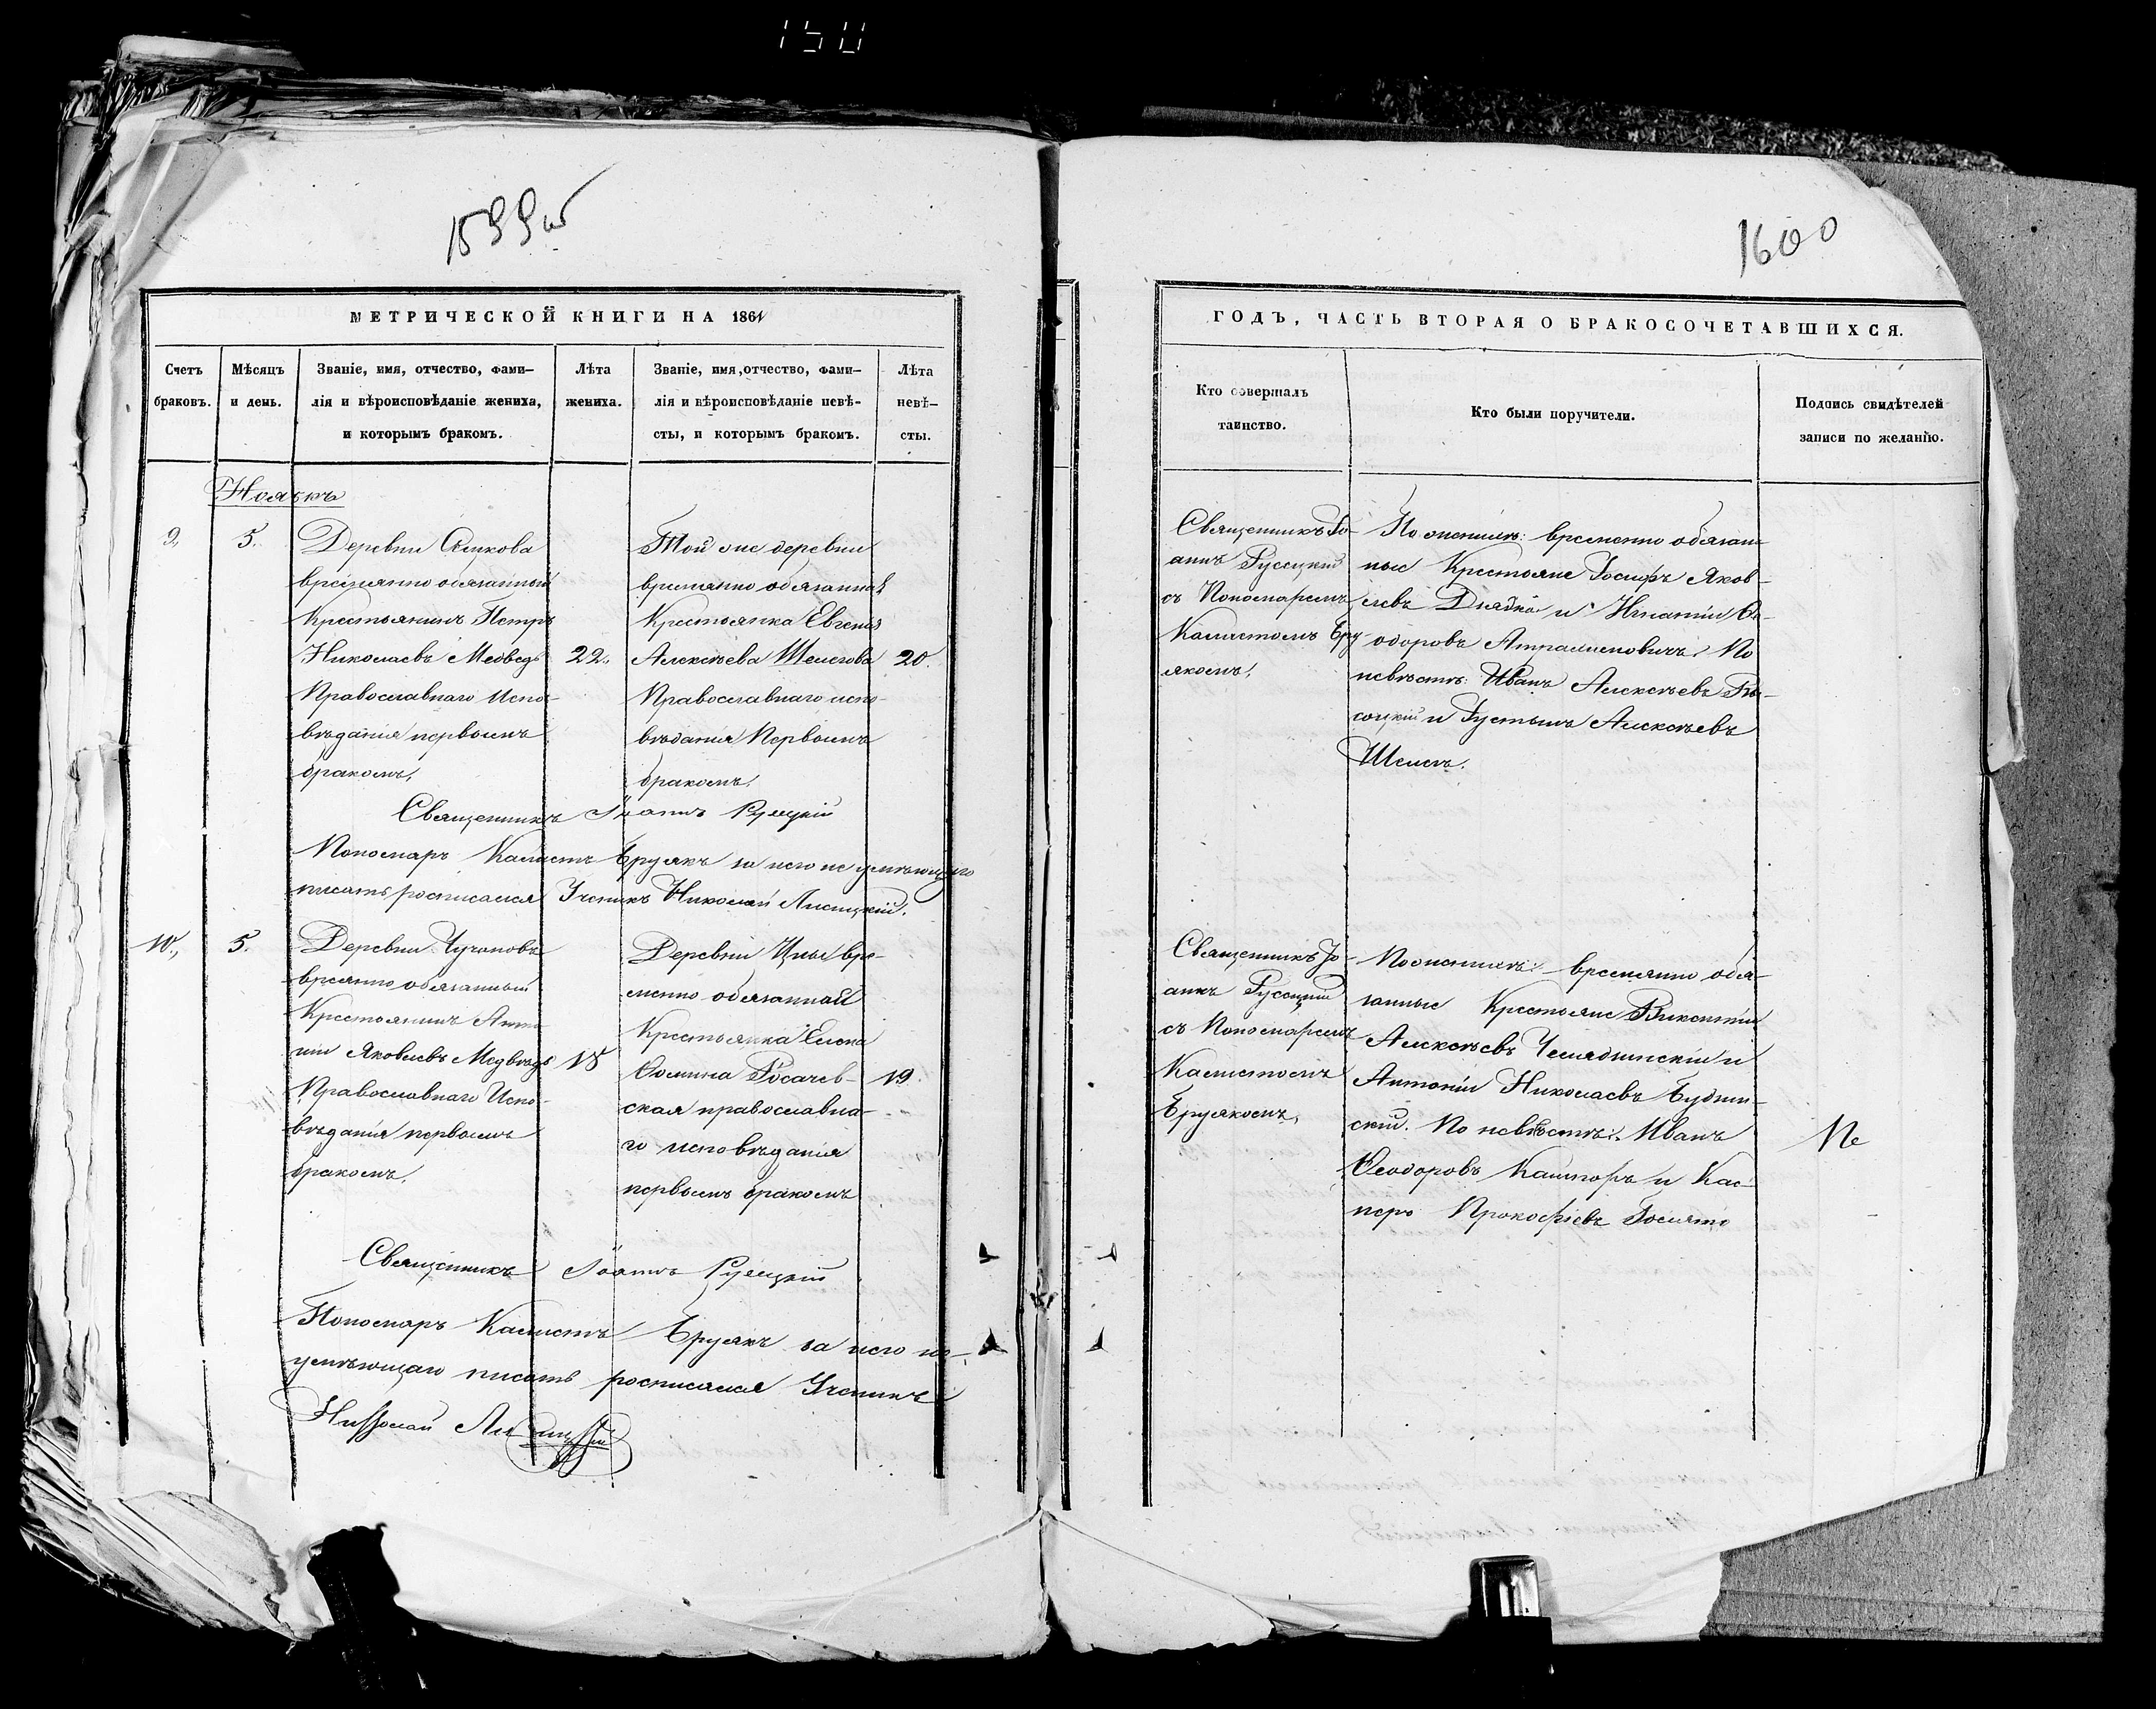 150
1599 об
1600
МЕТРИЧЕСКОЙ КНИГИ НА 1861
ГОДЪ, ЧАСТЬ ВТОРАЯ О БРАКОСОЧЕТАВШИХСЯ.
Счетъ
браковъ.
Мѣсяцъ
и день.
Званіе, имя, отчество, фами-
лія и вѣроисповѣданіе жениха,
и которымъ бракомъ.
Лѣта
жениха.
Званіе, имя, отчество, фами-
лія и вѣроисповѣданіе невѣ-
сты, и которымъ бракомъ.
Лѣта
невѣ-
сты.
Кто совершалъ
таинство.
Кто были поручители.
Подпись свидѣтелей
записи по желанію.
9,
5.
Деревни
временно обязанный
Крестьянинъ Петръ
Николаевъ Медведь
Православнаго Испо-
вѣданія первымъ
бракомъ,
22,
Той же деревни
временно обязанная
Крестьянка Евгенія
Алексѣева Шелегова
Православнаго испо-
вѣданія Первымъ
бракомъ,
20.
Священникъ Іо-
аннъ Русецкій
съ Пономаремъ
Калистомъ Бру-
якомъ,
По женихѣ: временно обязан-
ные Крестьяне Іосифъ Яков-
левъ и Игнатій Ѳе-
одоровъ По
невѣстѣ: Иванъ Алексѣевъ
и Іустинъ Алексѣевъ
Шелегъ.
Священникъ Іоаннъ Русецкій
Пономаръ Калистъ Бруякъ за него не умѣющаго
писать росписался Ученикъ Николай Лисицкій.
10.,
5.
Деревни
временно обязанный
Крестьянинъ Анто-
ній Яковлевъ Медвѣдь
Православнаго Испо-
вѣданія первымъ
бракомъ,
18
Деревни вре-
менно обязанная
Крестьянка Елена
Ѳомина Росачев-
ская православна-
го исповѣданія
первымъ бракомъ
19.
Священникъ Іо-
аннъ Русецкій
съ Пономаремъ
Калистомъ
Бруякомъ,
По женихѣ: временно обя-
занные Крестьяне Викентій
Алексѣевъ и
Антоній Николаевъ Будни-
скій. По невѣстѣ: Иванъ
Ѳеодоровъ и Кас-
перъ Прокофіевъ
Священникъ Іоаннъ Русецкій
Пономаръ Калистъ Бруякъ за него не-
умѣющаго писать росписался Ученикъ
Николай Лисицкій